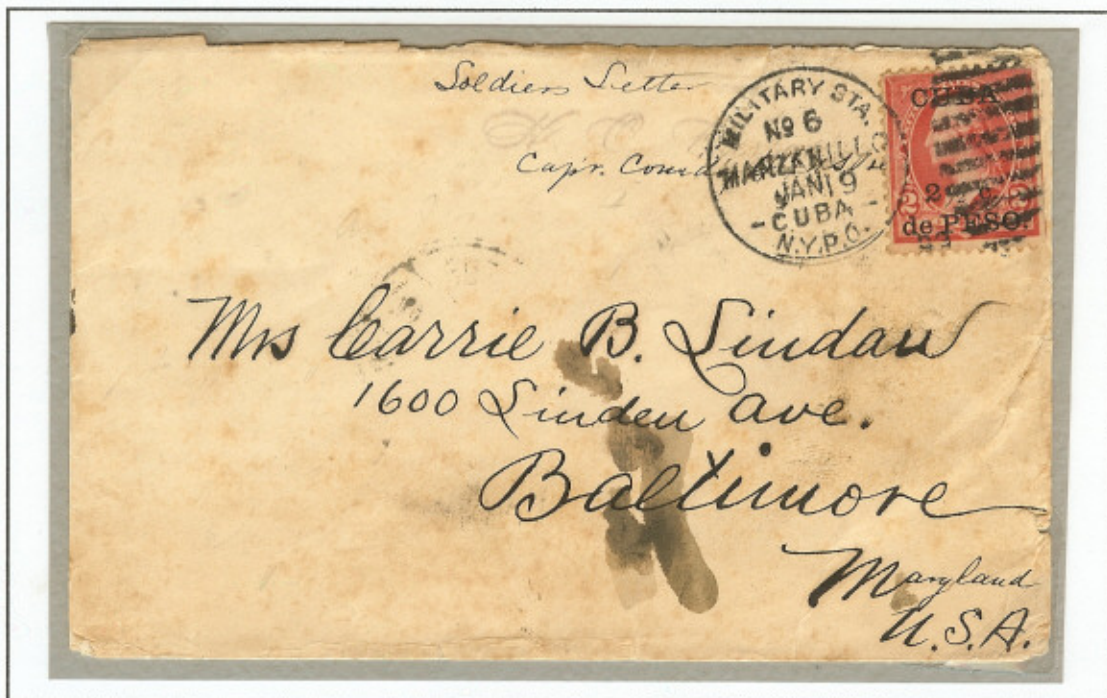 Soldiers Letter
Capt. Comd
MILITARY STA.
No 6
MANZANILLO
JAN 19
- CUBA -
N.Y.P.O.
CUBA
2 c.
de PESO.
Mrs Carrie B. Lindau
1600 Linden Ave.
Baltimore
Maryland
U.S.A.